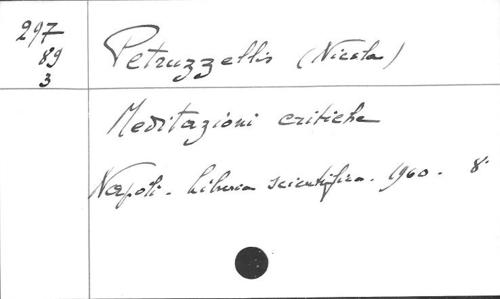 297
89
3
Petruzzellis (Nicola)
Meditazioni critiche
Napoli - Libreria scientifica. 1960 - 8°